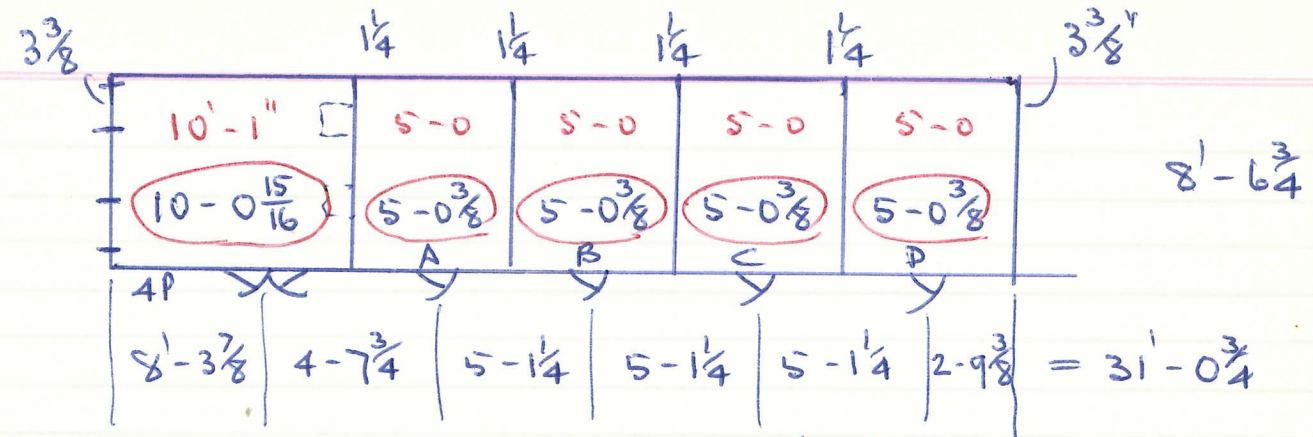 3 3/8 1 1/4 1 1/4 1 1/4 1 1/4 3 3/8"
10' - 1" 5 - 0 5 - 0 5 - 0 5 - 0
8' - 6 3/4
10 - 0 15/16 5 - 0 3/8 5 - 0 3/8 5 - 0 3/8 5 - 0 3/8
A B C D
4P
8' - 3 7/8 4 - 7 3/4 5 - 1 1/4 5 - 1 1/4 5 - 1 1/4 2 - 9 3/8 = 31' - 0 3/4